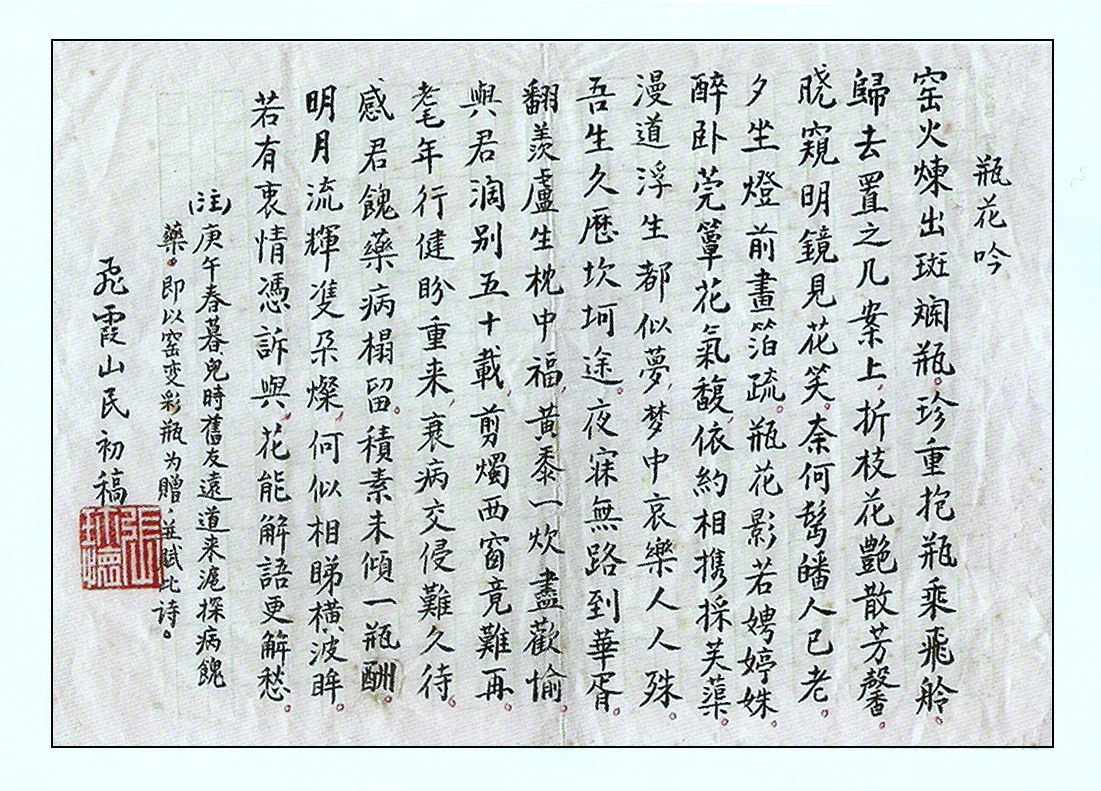 瓶花吟
窑火煉出斑斕瓶。珍重抱瓶乘飛舲。
歸去置之几案上，折枝花艷散芳馨。
晓窺明鏡見花笑。奈何鬓皤人已老。
夕坐燈前畫箔疏。瓶花影若娉婷姝。
醉卧莞簟花氣馥，依約相携採芙蕖。
漫道浮生都似夢，梦中哀樂人人殊。
吾生久歷坎坷途。夜寐無路到華胥。
翻羡盧生枕中福，黃黍一炊盡歡愉。
與君濶别五十載，剪燭西窗竟難再。
耄年行健盼重来，衰病交侵難久待。
感君餽藥病榻留。積素未傾一瓶酬。
明月流輝隻朶燦，何似相睇橫波眸。
若有衷情憑訴與，花能解語更解愁。
(注)庚午春暮兒時舊友遠道来滬探病餽
藥。即以窑变彩瓶为贈，並賦此詩。
飛霞山民初稿